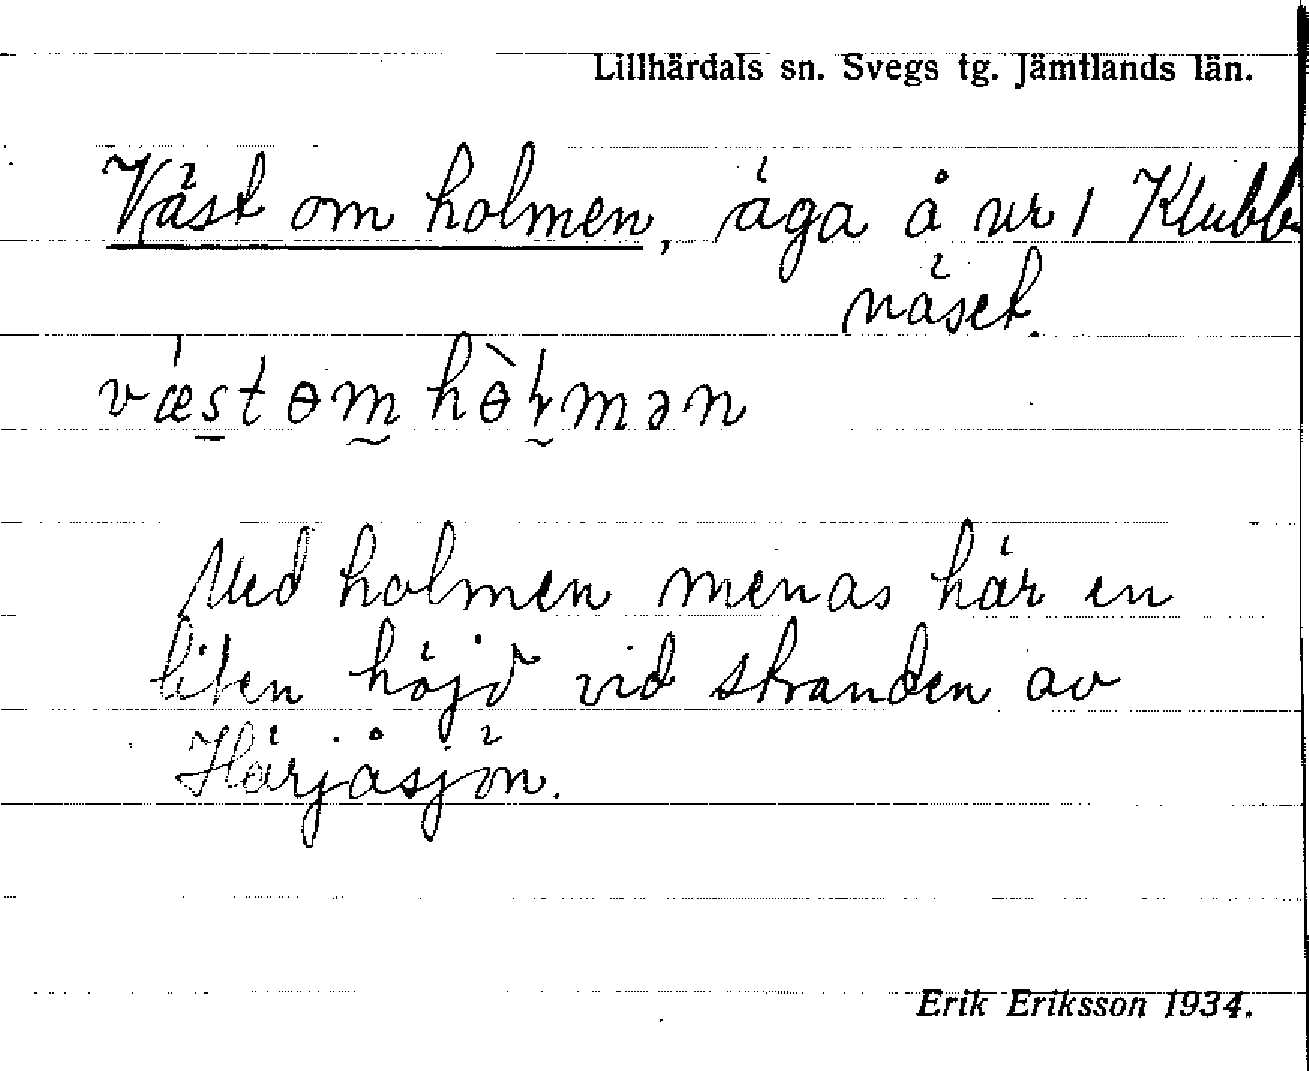 Lillhärdals sn. Svegs tg. Jämtlands län.
Väst om holmen, äga å nr 1 Klubb
näset.
væst ɵm hɵ̀ɽmən
Med holmen menas här en
liten höjd vid stranden av
Härjåsjön.
Erik Eriksson 1934.